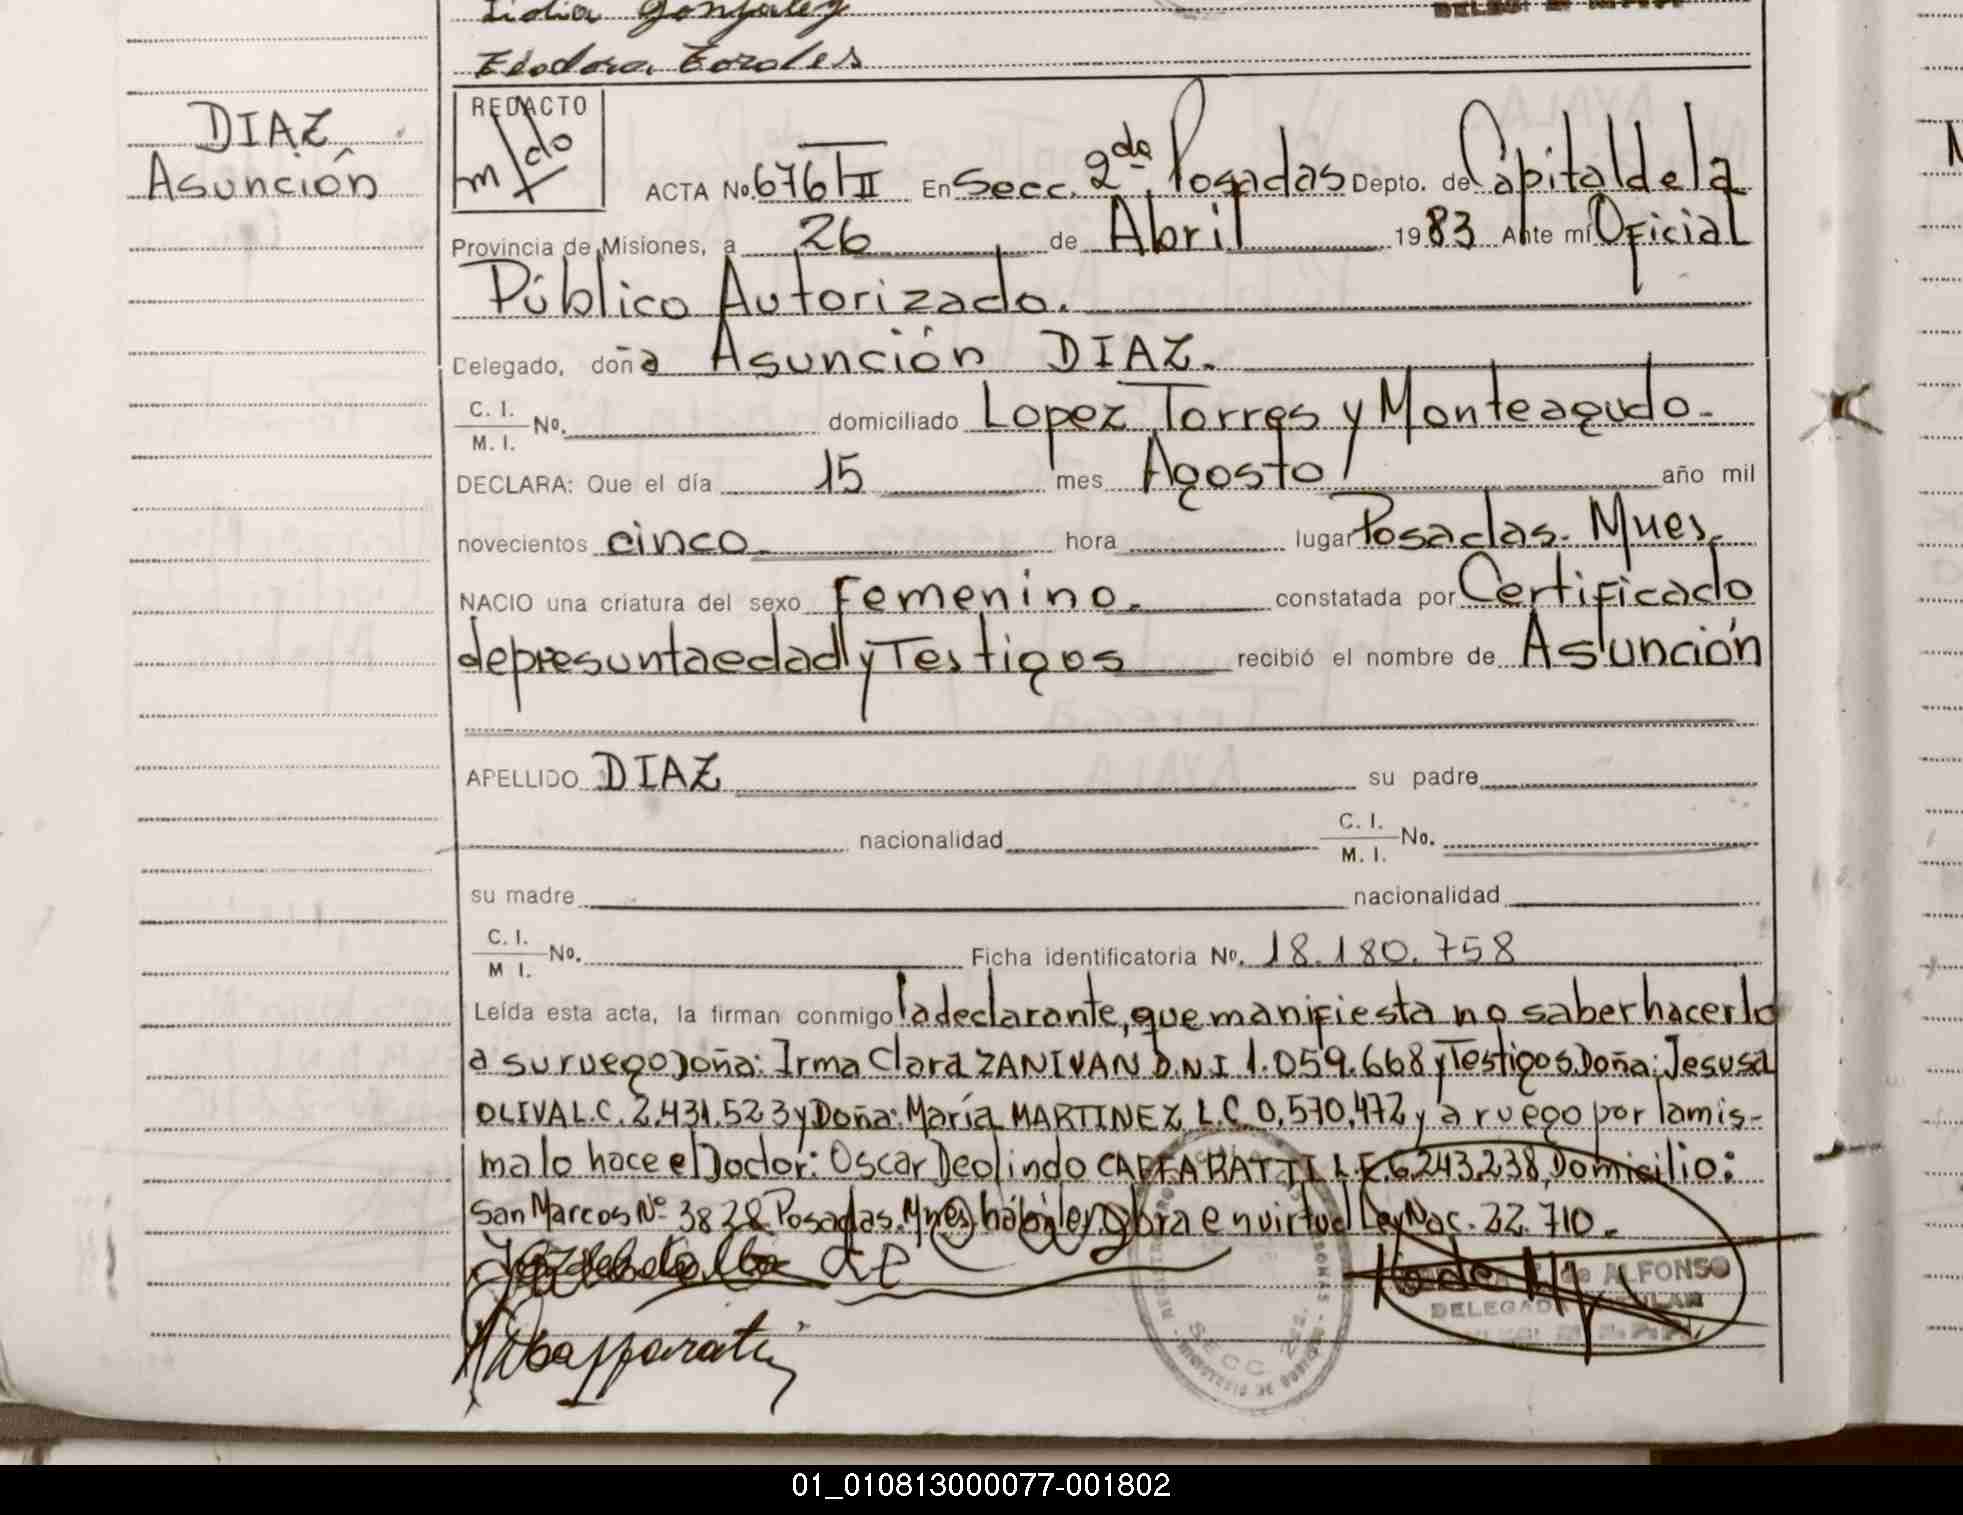 Lidia Gonzalez
Teodora Toroles
DIAZ
Asunción
REDACTO
ACTA No. 676 T II En Secc. 2da. Posadas Depto. de Capital de la
Provincia de Misiones, a 26 de Abril 1983 Ante mí Oficial
Público Autorizado.
Delegado, doña Asunción DIAZ.
C. I.
M. I. No. domiciliado Lopez Torres y Monteagudo.
DECLARA: Que el día 15 mes Agosto año mil
novecientos cinco. hora lugar Posadas. Mnes.
NACIO una criatura del sexo Femenino. constatada por Certificado
de presunta edad y Testigos recibió el nombre de Asunción
APELLIDO DIAZ su padre
nacionalidad C. I.
M. I. No.
su madre nacionalidad
C. I.
M I. No. Ficha identificatoria No. 18.180.758
Leída esta acta, la firman conmigo la declarante, que manifiesta no saber hacerlo
a su ruego Doña: Irma Clara ZANIVAN D.N.I 1.059.668 y Testigos. Doña: Jesusa
OLIVA L.C. 2.431.523 y Doña: María MARTINEZ L.C. 0.570.472 y a ruego por la mis-
ma lo hace el Doctor: Oscar Deolindo CAFFARATTI L.E. 6.243.238, Domicilio:
San Marcos Nº 3828 Posadas. Mnes) hábil en obra en virtud Ley Nac. 22.710.
de ALFONSO
SECC. 2da.
01_010813000077-001802